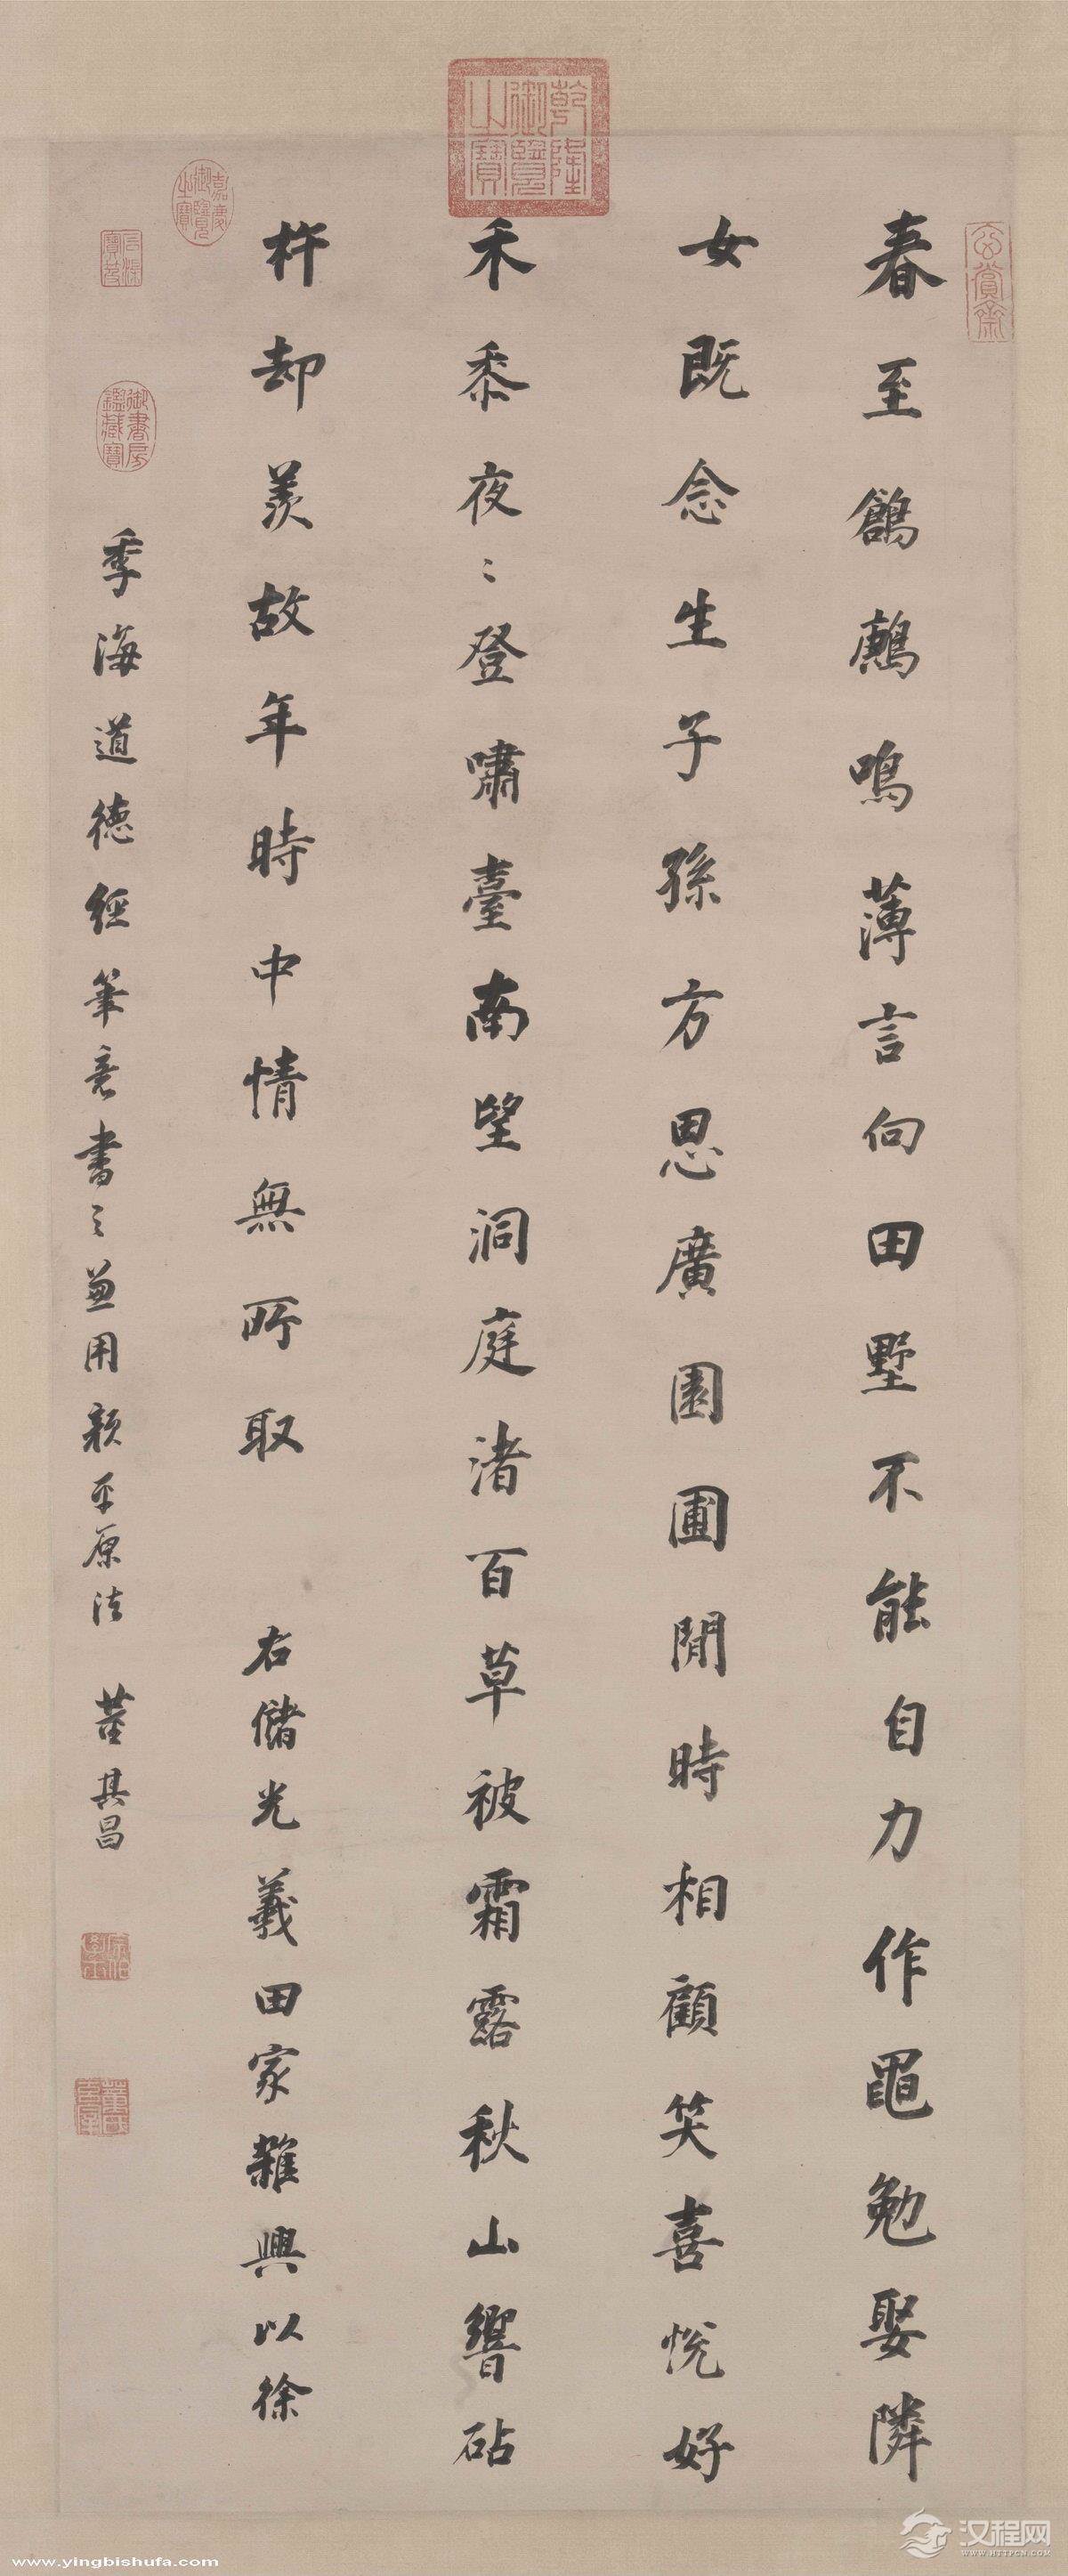 春至鶬鶊鳴薄言向田墅不能自力作黽勉娶隣
女既念生子孫方思廣園圃閒時相顧笑喜悅好
禾黍夜〻登嘯臺南望洞庭渚百草被霜露秋山響砧
杵却羨故年時中情無所取
右儲光羲田家雜興以徐
季海道德經筆意書之兼用顏平原法
董其昌
玄賞齋
乾隆御覽之寶
嘉慶御覽之寶
石渠寶笈
御書房鑑藏寶
汉程网
WWW.HTTPCN.COM
www.yingbishufa.com